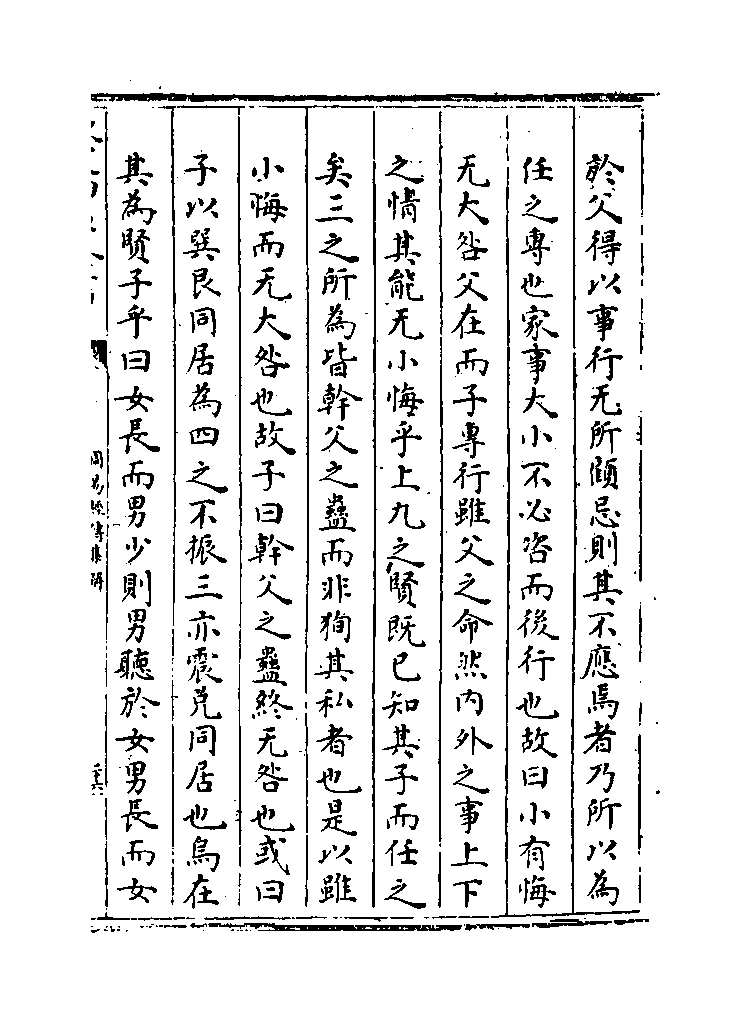 於父得以事行无所顧忌則其不應焉者乃所以為
任之專也家事大小不必咨而後行也故曰小有悔
无大咎父在而子專行雖父之命然内外之事上下
之情其能无小悔乎上九之賢既已知其子而任之
矣三之所為皆幹父之蠱而非狥其私者也是以雖
小悔而无大咎也故子曰幹父之蠱終无咎也或曰
子以巽艮同居為四之不振三亦震兑同居也烏在
其為賢子乎曰女長而男少則男聽於女男長而女
周易經傳集解